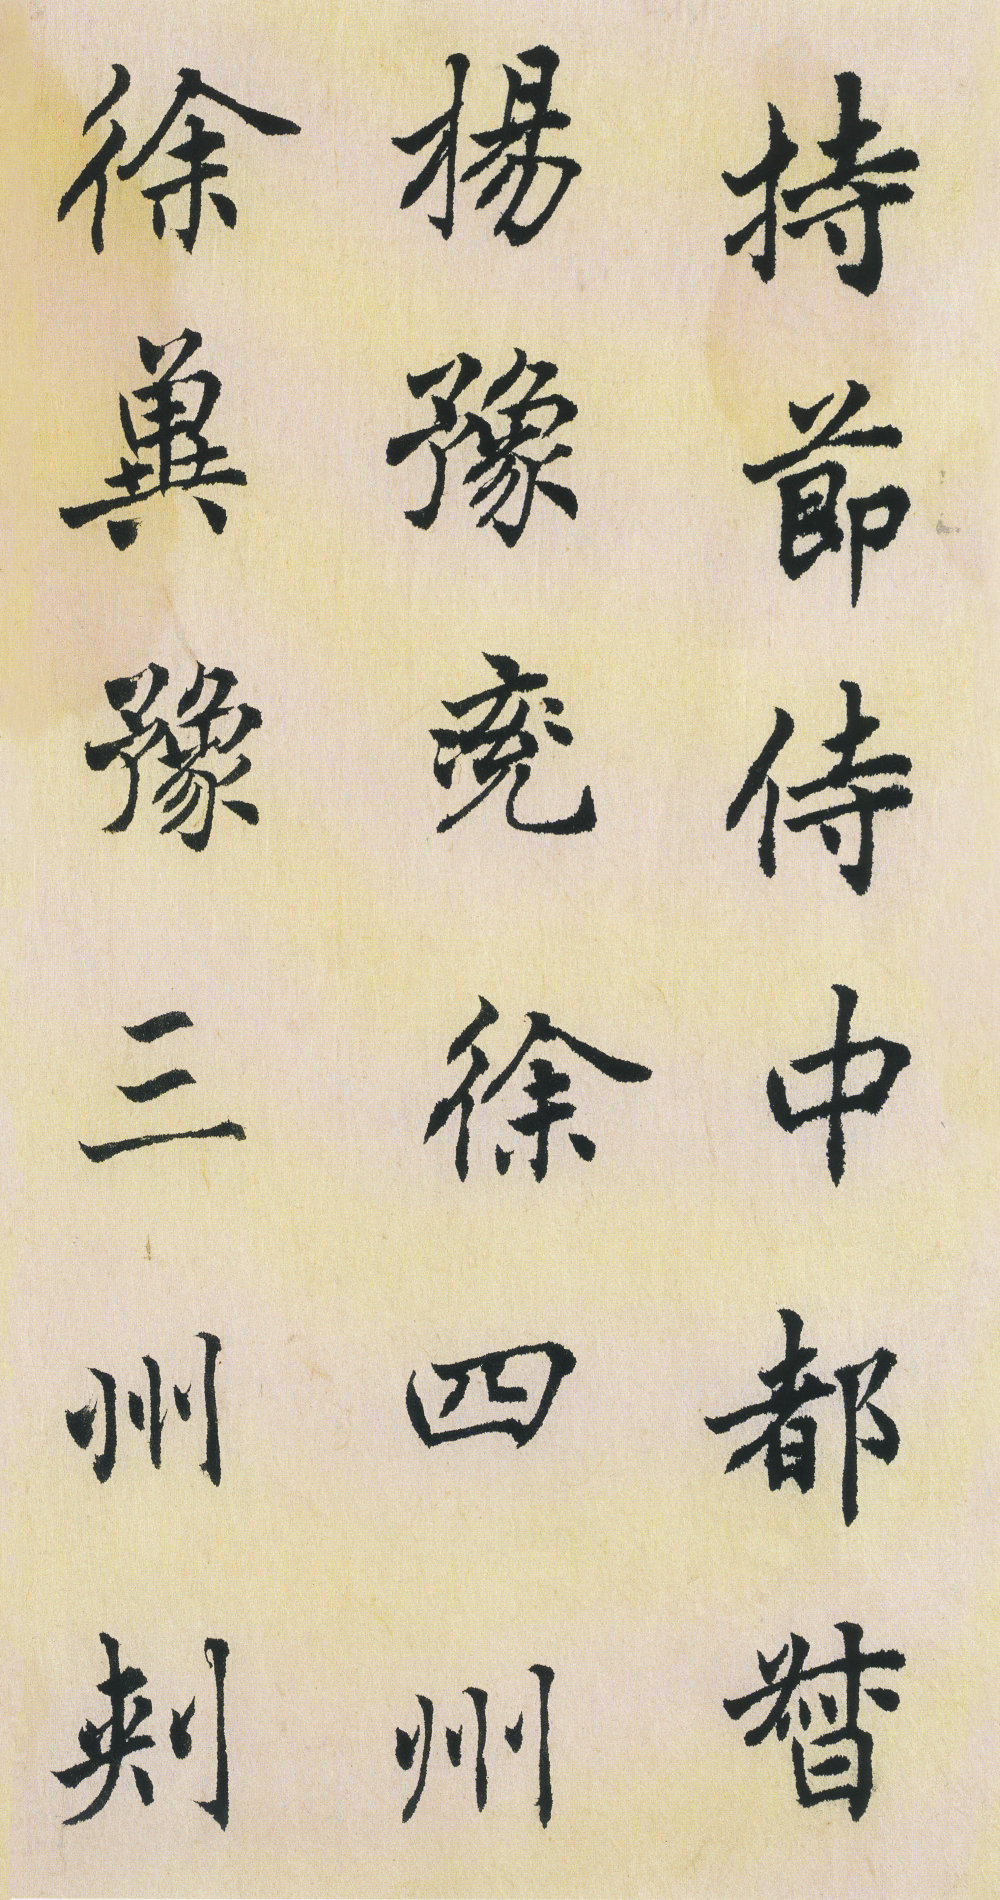 持節侍中都督
楊豫兗徐四州
徐冀豫三州刺